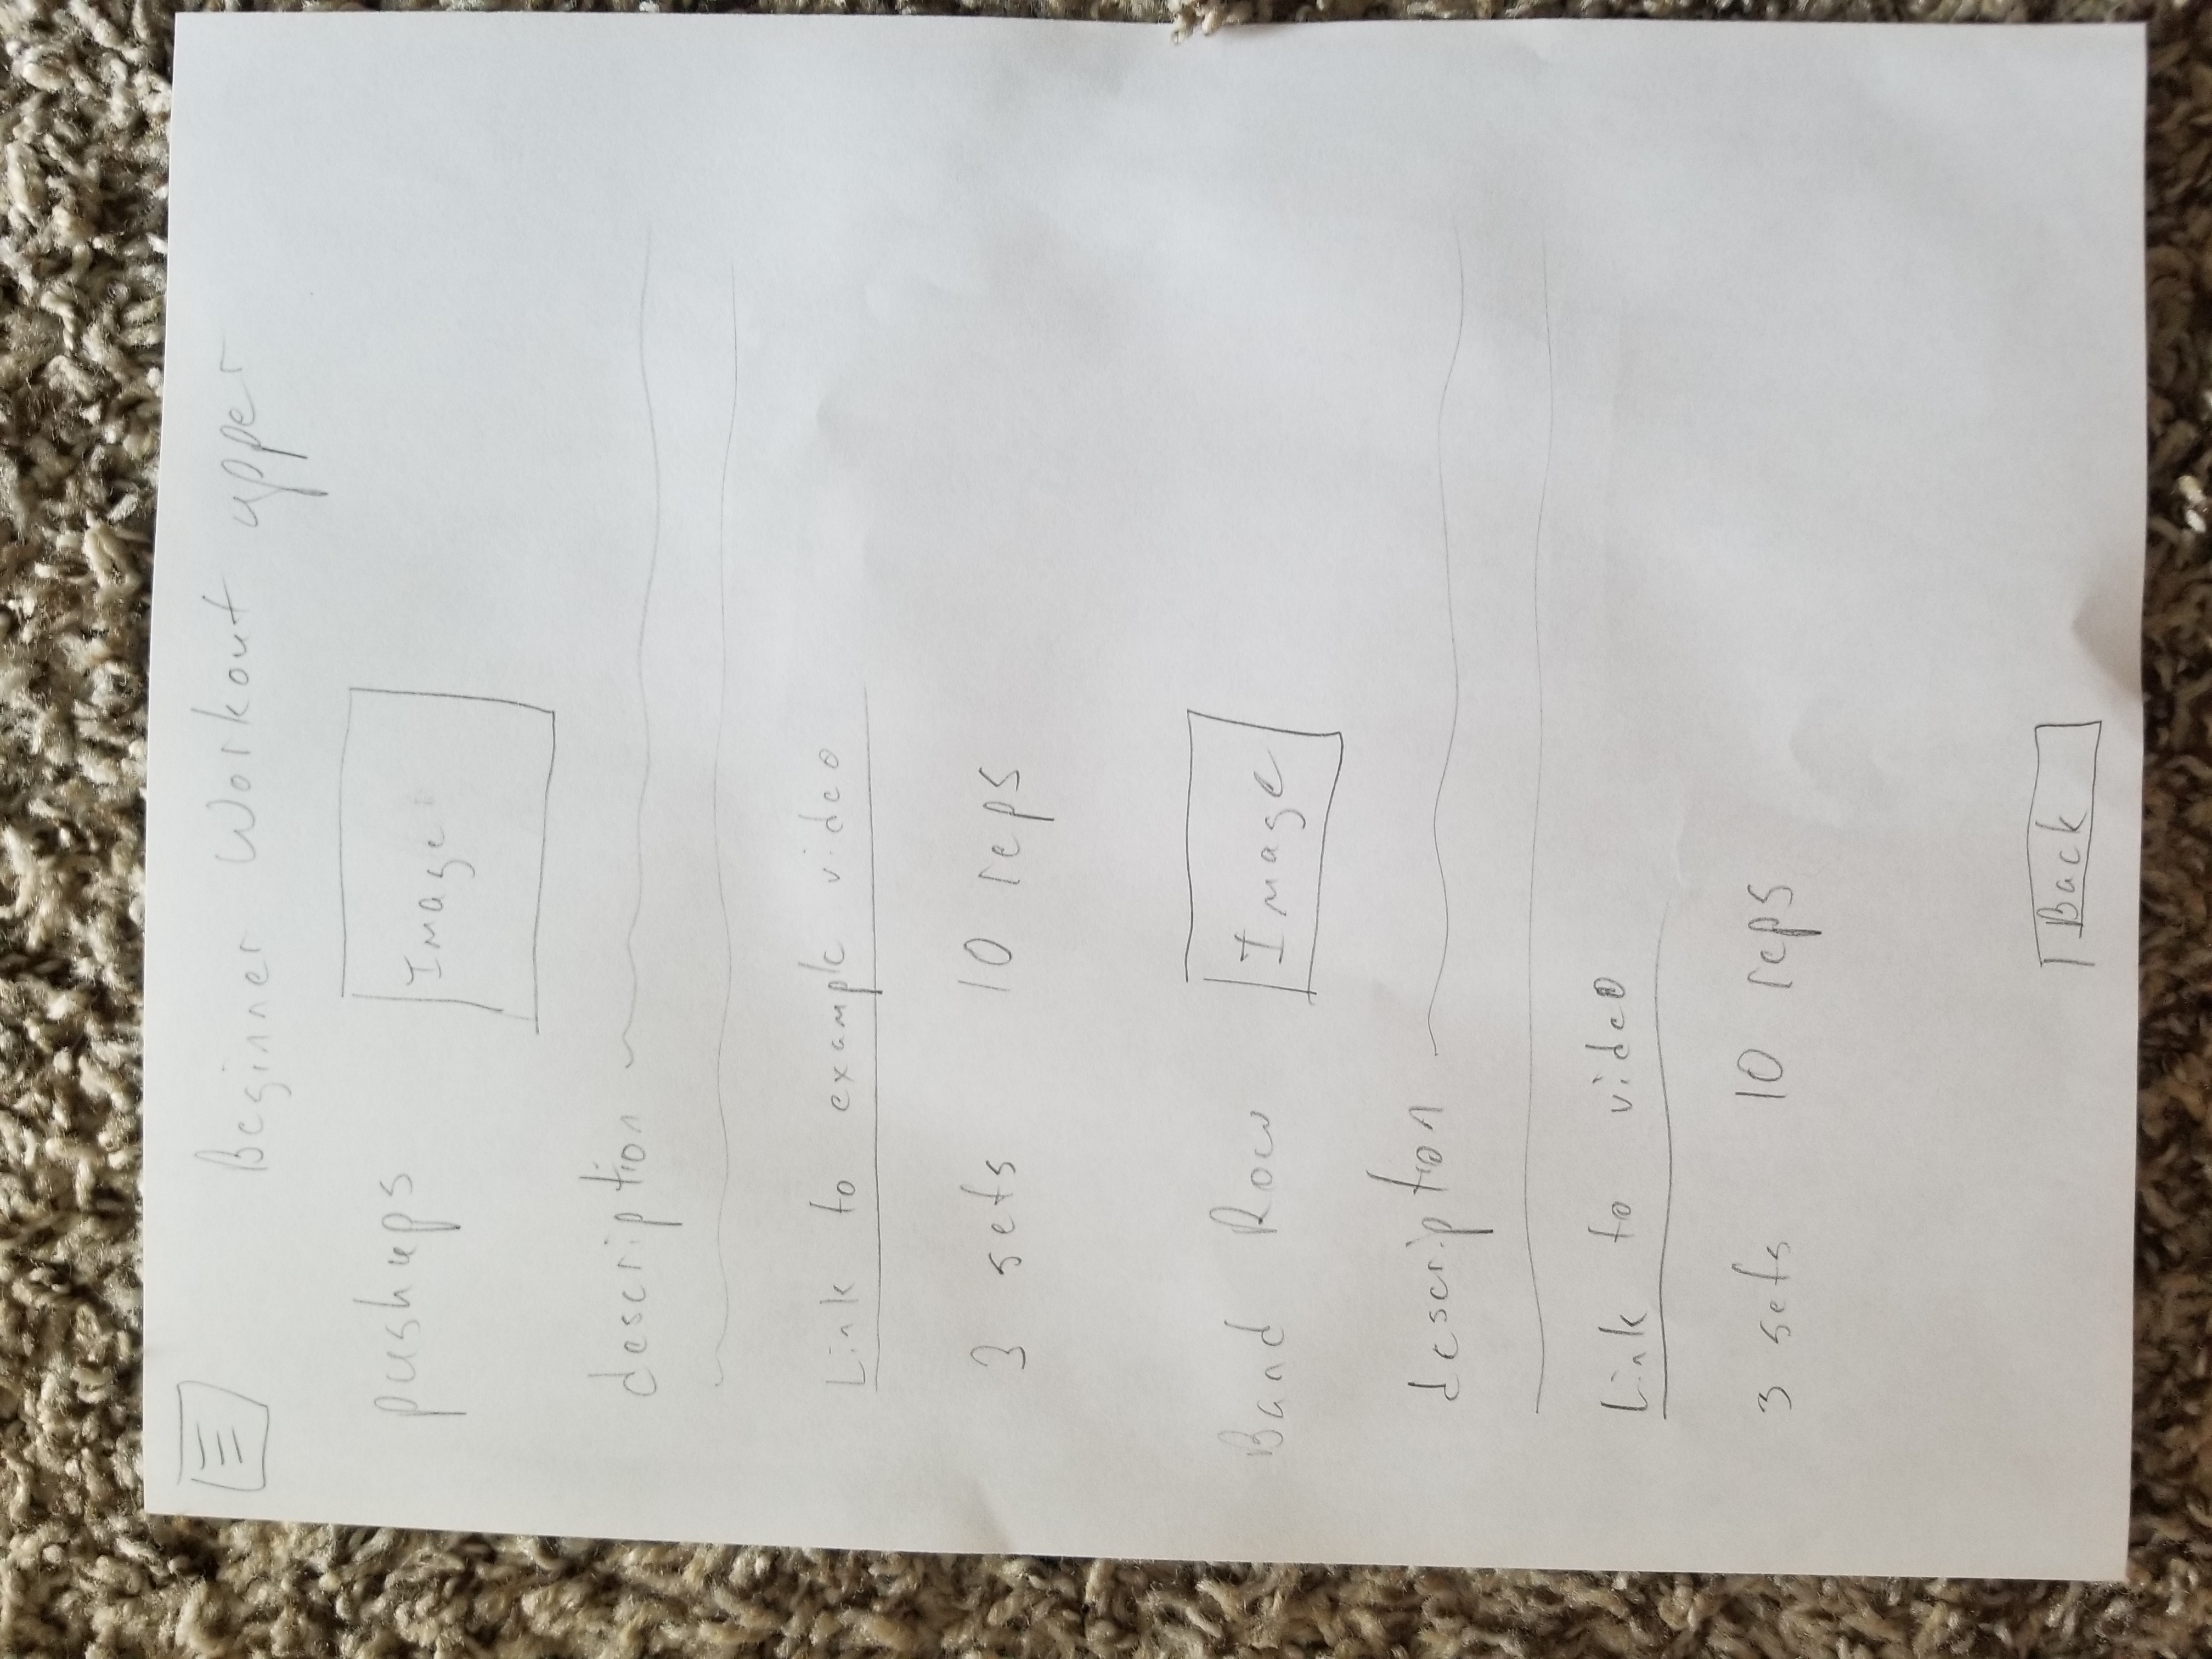 Beginner Workout upper
pushups
Image
description
Link to example video
3 sets 10 reps
Band Row
Image
description
Link to video
3 sets 10 reps
Back